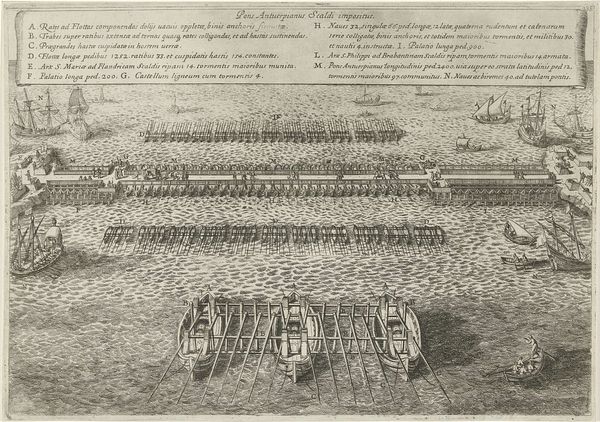 Pons Antverpianus Scaldi impositus.
A. Rates ad Flottas componendas dolijs vacuis oppletæ, binis anchoris firmatæ
B. Trabes super ratibus extensæ ad ternas quasq. rates colligandas, et ad hastas sustinendas.
C. Prægrandes hastæ cuspidatæ in hostem versæ.
D. Flotte longæ pedibus 1252. ratibus 33. et cuspidatis hastis 174. constantes.
E. Arx S. Mariæ ad Flandricam Scaldis ripam 14. tormentis maioribus munita.
F. Palatio longa ped. 200. G. Castellum ligneum cum tormentis 4.
H. Naues 32, singulæ 66. ped. longæ, 12 latæ, quaterna rudentum et catenarum
serie colligatæ, binis anchoris, et totidem maioribus tormentis, et militibus 30.
et nautis 4. instructæ. I. Palatio longa ped. 900.
L. Arx S. Philippi ad Brabantinam Scaldis ripam, tormentis maioribus 14. armata.
M. Pons Antverpianus longitudinis ped. 2400. via super eo, strata latitudinis ped 12,
tormentis maioribus 97. communitus. N. Naues ac biremes 40. ad tutelam pontis.